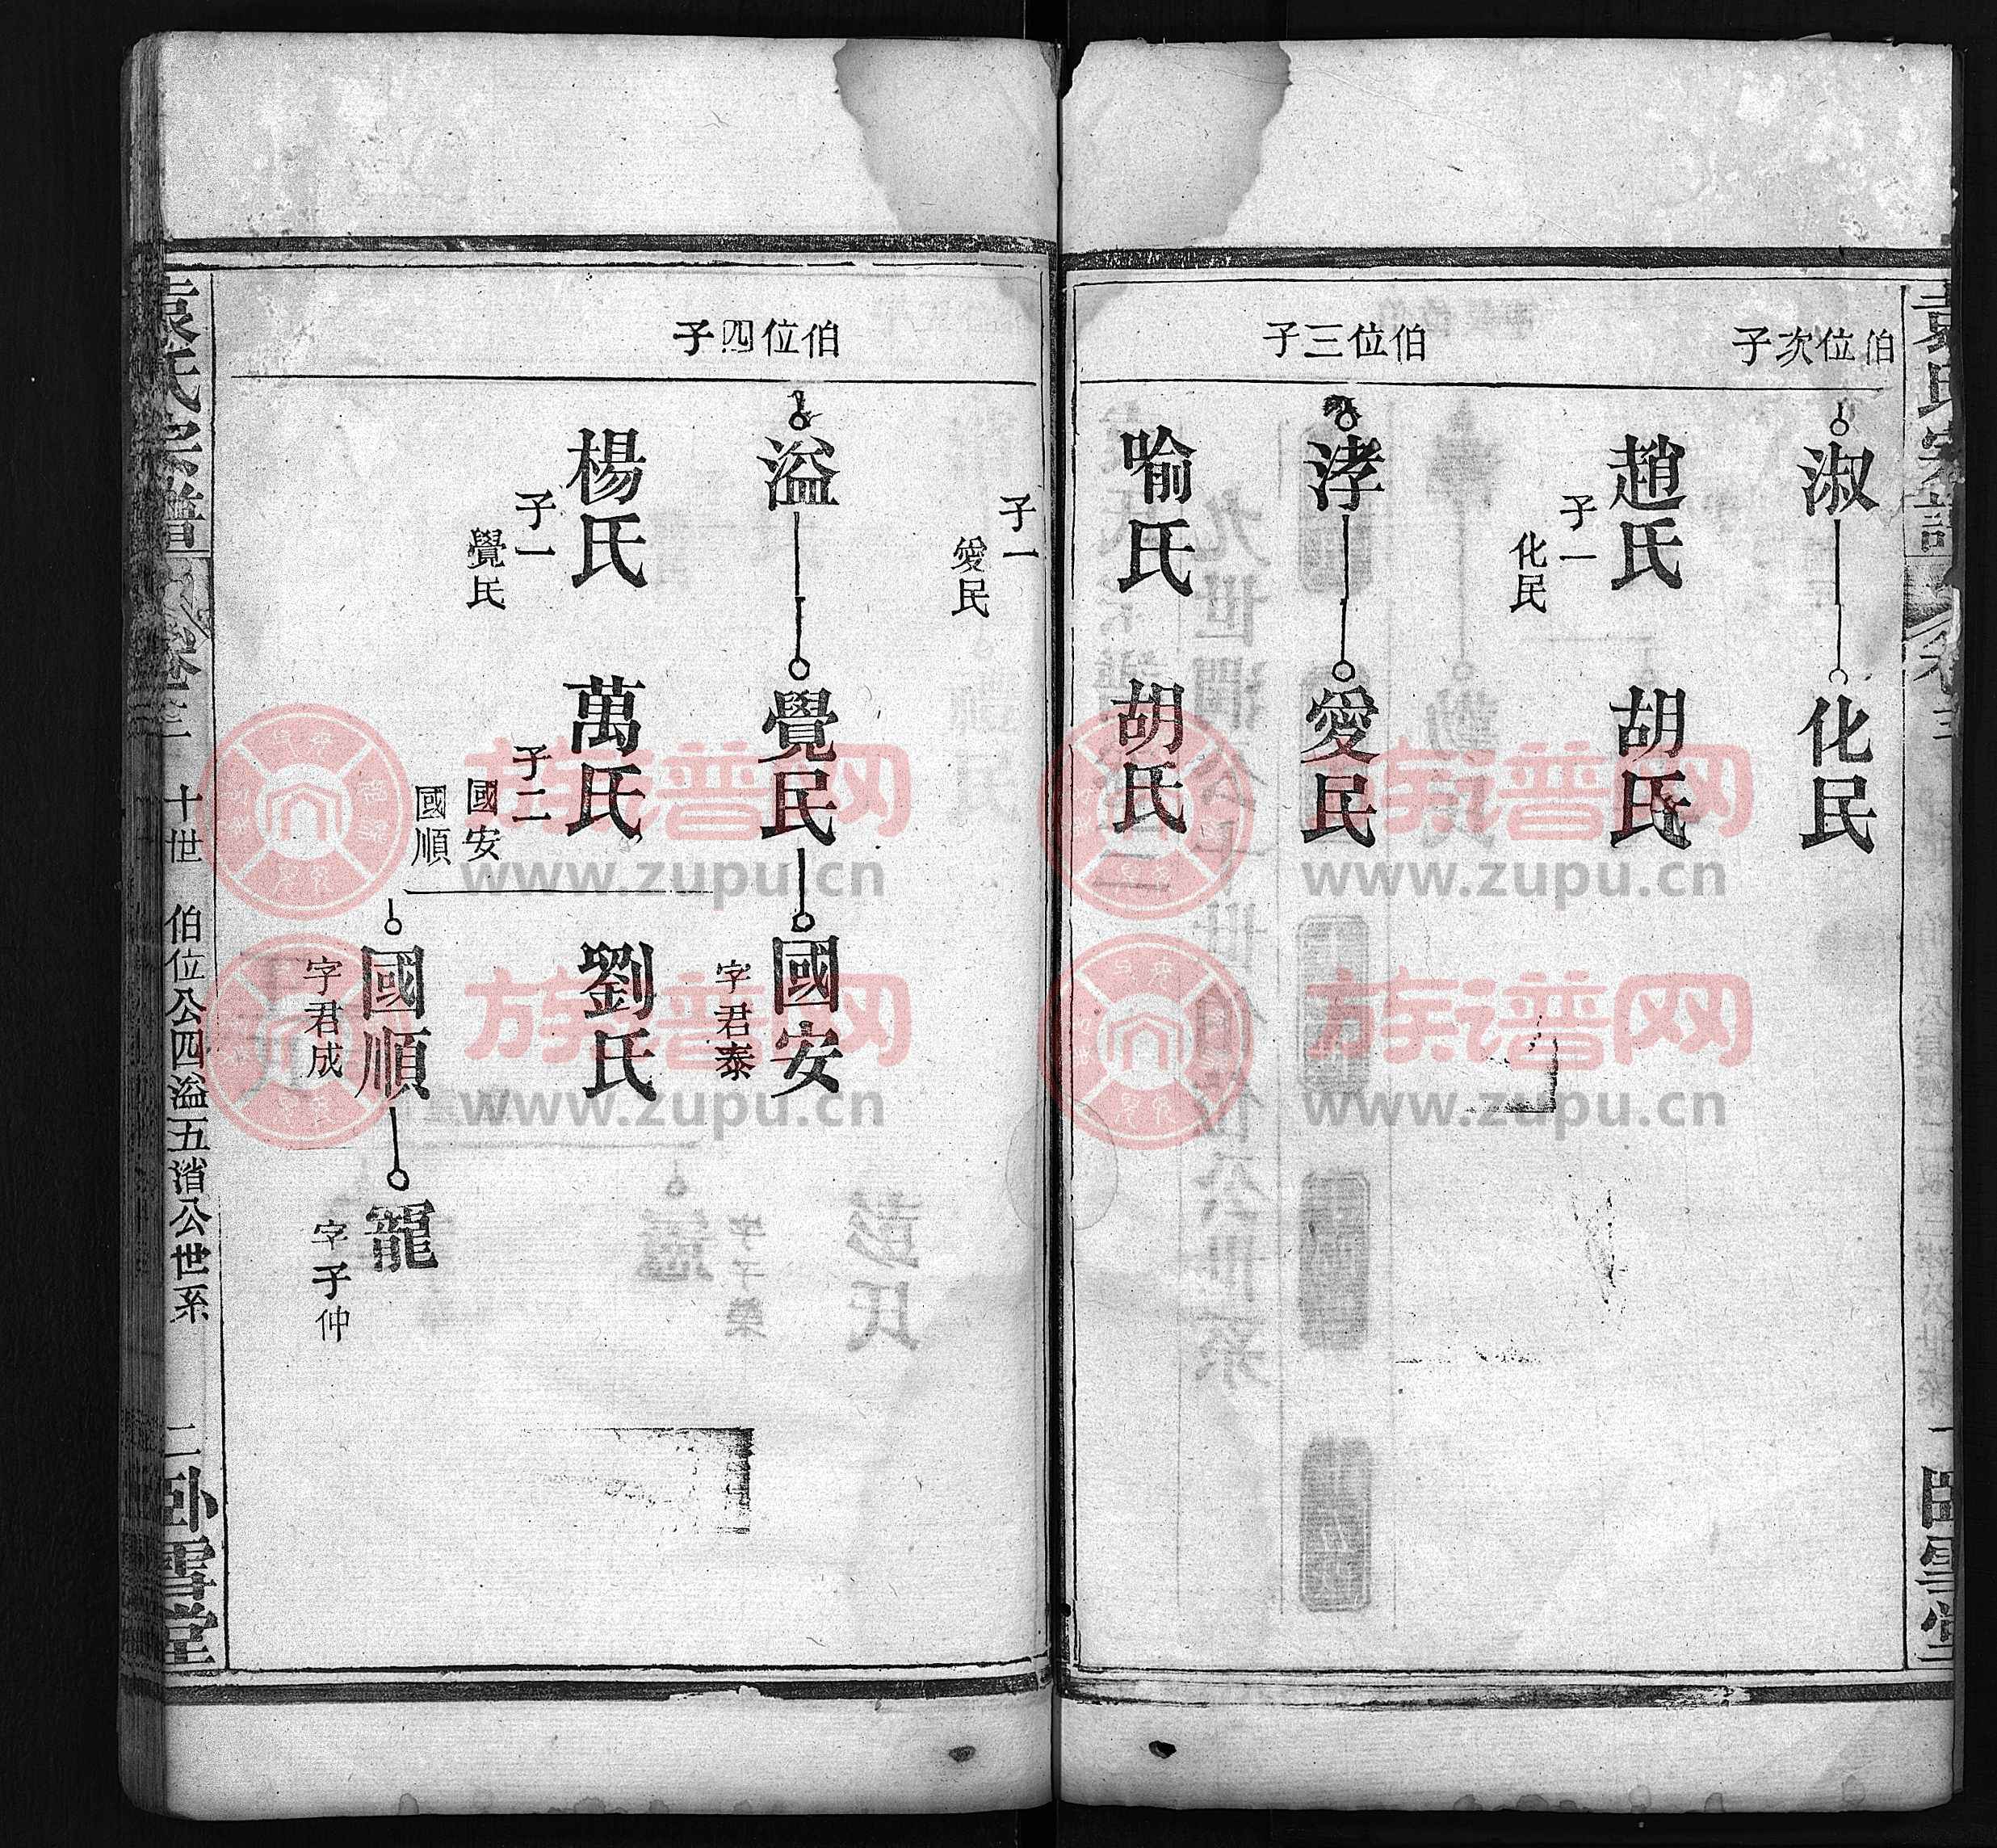 袁氏宗譜
卷三
一
臥雪堂
伯位次子
淑
化民
趙氏
胡氏
子一
化民
伯位三子
浡
愛民
喻氏
胡氏
子一
愛民
伯位四子
溢
覺民
國安
字君泰
楊氏
萬氏
劉氏
子一
覺民
子二
國安
國順
國順
字君成
龍
字子仲
袁氏宗譜
卷三
十世
伯位公四溢五渻公世系
二
臥雪堂
族谱网
www.zupu.cn
族谱网
www.zupu.cn
族谱网
www.zupu.cn
族谱网
www.zupu.cn